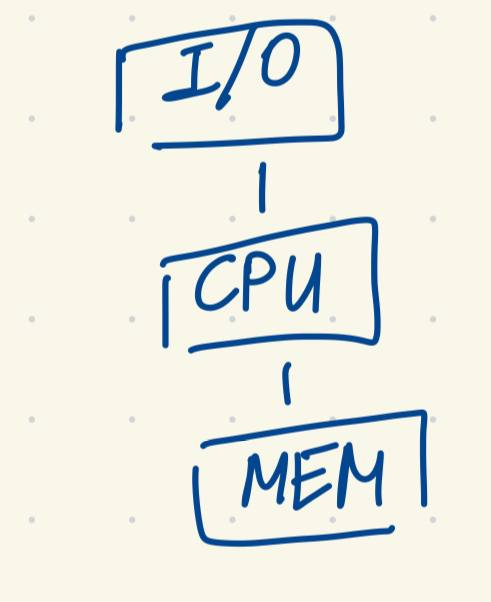 I/O
CPU
MEM